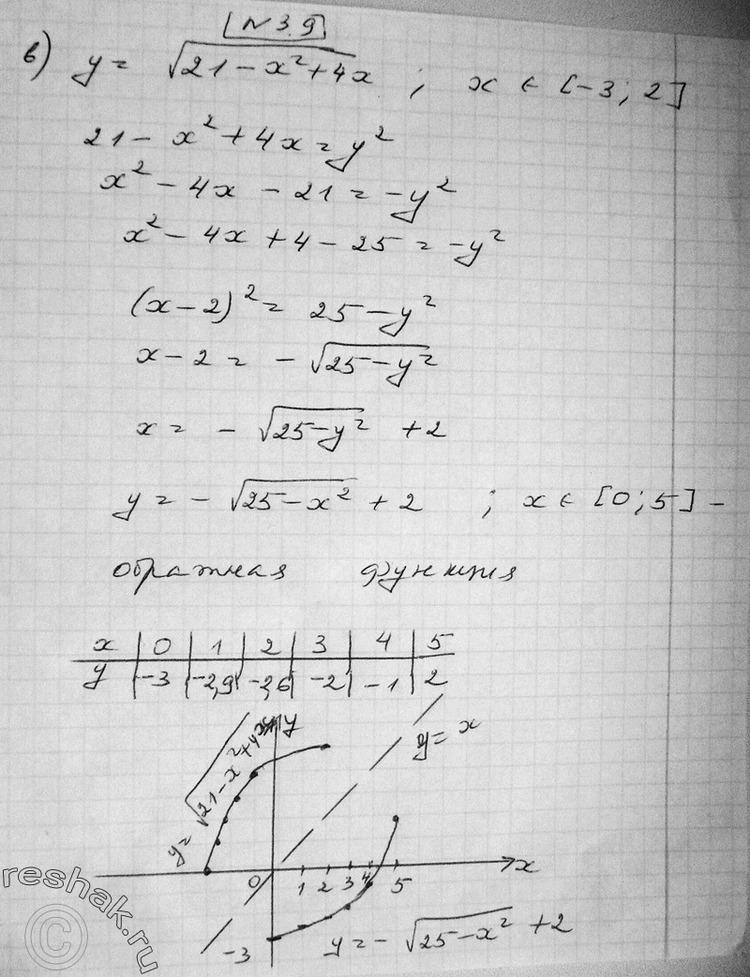 N 3.9
в) y = √(21 - x² + 4x) ; x ∈ [-3; 2]
21 - x² + 4x = y²
x² - 4x - 21 = -y²
x² - 4x + 4 - 25 = -y²
(x - 2)² = 25 - y²
x - 2 = - √(25 - y²)
x = - √(25 - y²) + 2
y = - √(25 - x²) + 2 ; x ∈ [0; 5] -
обратная функция
x | 0 | 1 | 2 | 3 | 4 | 5
y | -3 | -2,9 | -2,6 | -2 | -1 | 2
y = √(21 - x² + 4x)
y
y = x
0 1 2 3 4 5 x
-3
y = - √(25 - x²) + 2
reshak.ru
©